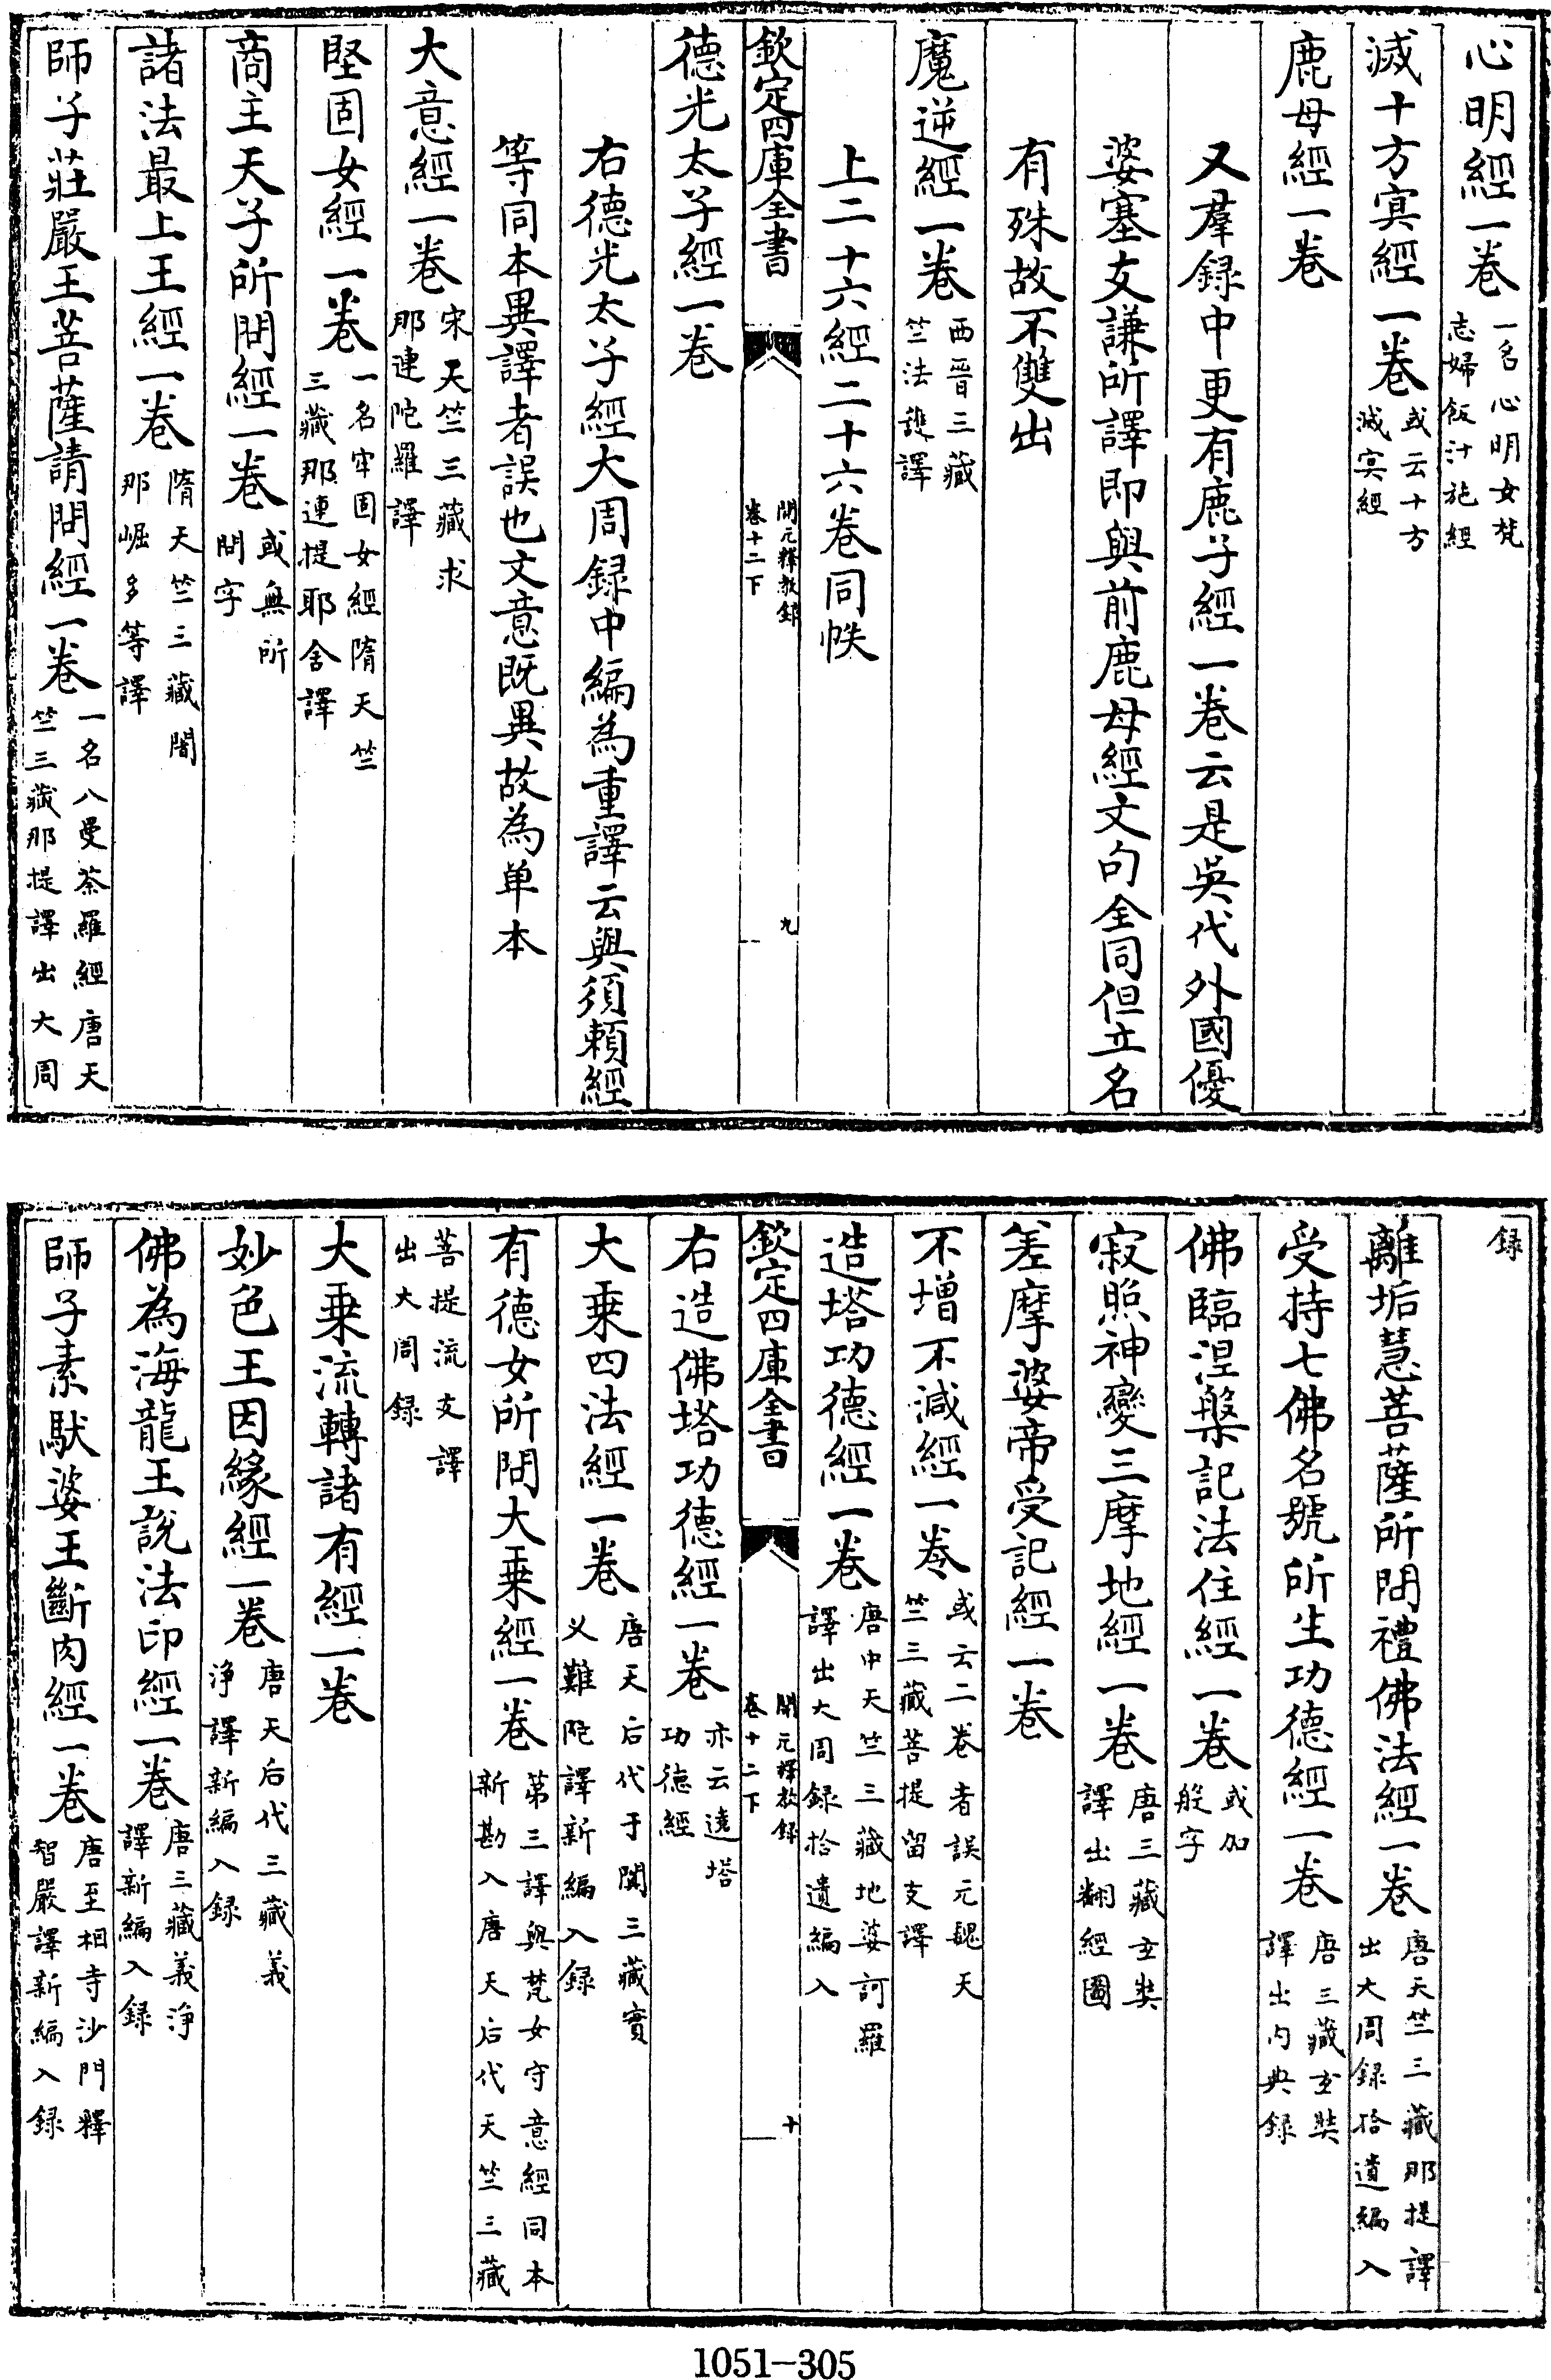 心明經一卷一名心明女梵志婦飯汁施經
滅十方㝠經一卷或云十方滅㝠經
鹿母經一卷
又羣録中更有鹿子經一卷云是吳代外國優
婆塞支謙所譯即與前鹿母經文句全同但立名
有殊故不雙出
魔逆經一卷西晉三藏竺法護譯
上二十六經二十六卷同帙
欽定四庫全書 開元釋教錄卷十二下 九
德光太子經一卷
右德光太子經大周録中編為重譯云與須頼經
等同本異譯者誤也文意既異故為单本
大意經一卷宋天竺三藏求那連陀羅譯
堅固女經一卷一名牢固女經隋天竺三藏那連提耶舍譯
商主天子所問經一卷或無所問字
諸法最上王經一卷隋天竺三藏闍那崛多等譯
師子莊嚴王菩薩請問經一卷一名八曼荼羅經唐天竺三藏那提譯出大周
録
離垢慧菩薩所問禮佛法經一卷唐天竺三藏那提譯出大周録拾遺編入
受持七佛名號所生功德經一卷唐三藏玄奘譯出内典録
佛臨涅槃記法住經一卷或加般字
寂照神變三摩地經一卷唐三藏玄奘譯出翻經圖
差摩婆帝受記經一卷
不增不減經一卷或云二卷者誤元魏天竺三藏菩提留支譯
造塔功德經一卷唐中天竺三藏地婆訶羅譯出大周録拾遺編入
欽定四庫全書 開元釋教録卷十二下 十
右造佛塔功德經一卷亦云遶塔功德經
大乗四法經一卷唐天后代于闐三藏實义難陀譯新編入録
有德女所問大乗經一卷第三譯與梵女守意經同本新勘入唐天后代天竺三藏
菩提流支譯出大周録
大乗流轉諸有經一卷
妙色王因緣經一卷唐天后代三藏義浄譯新編入録
佛為海龍王說法印經一卷唐三藏義浄譯新編入録
師子素馱娑王斷肉經一卷唐至相寺沙門釋智嚴譯新編入録
1051-305